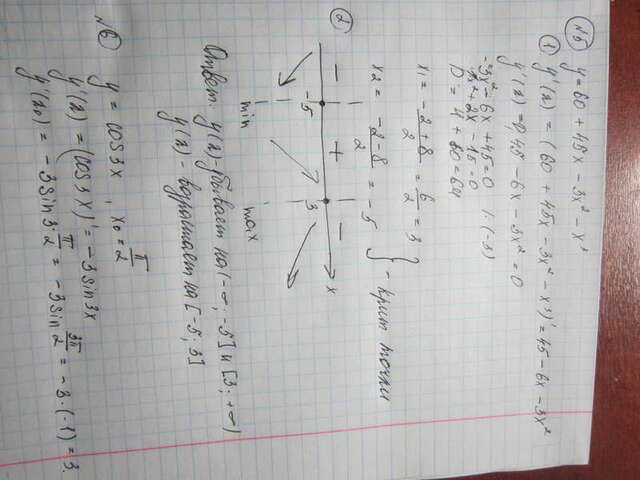 №5 y = 60 + 45x - 3x² - x³
① y'(x) = (60 + 45x - 3x² - x³)' = 45 - 6x - 3x²
y'(x) = 0, 45 - 6x - 3x² = 0
-3x² - 6x + 45 = 0 | · (-3)
x² + 2x - 15 = 0
D = 4 + 60 = 64
x₁ = -2+8/2 = 6/2 = 3
x₂ = -2-8/2 = -5 } - крит точки
② - -5 + 3 - x
min max
Ответ: y(x) - убывает на (-∞; -5] и [3; +∞)
y(x) - возрастает на [-5; 3]
№6 y = cos3x, x₀ = π/2
y'(x) = (cos3x)' = -3sin3x
y'(x₀) = -3sin3 π/2 = -3sin 3π/2 = -3·(-1) = 3.